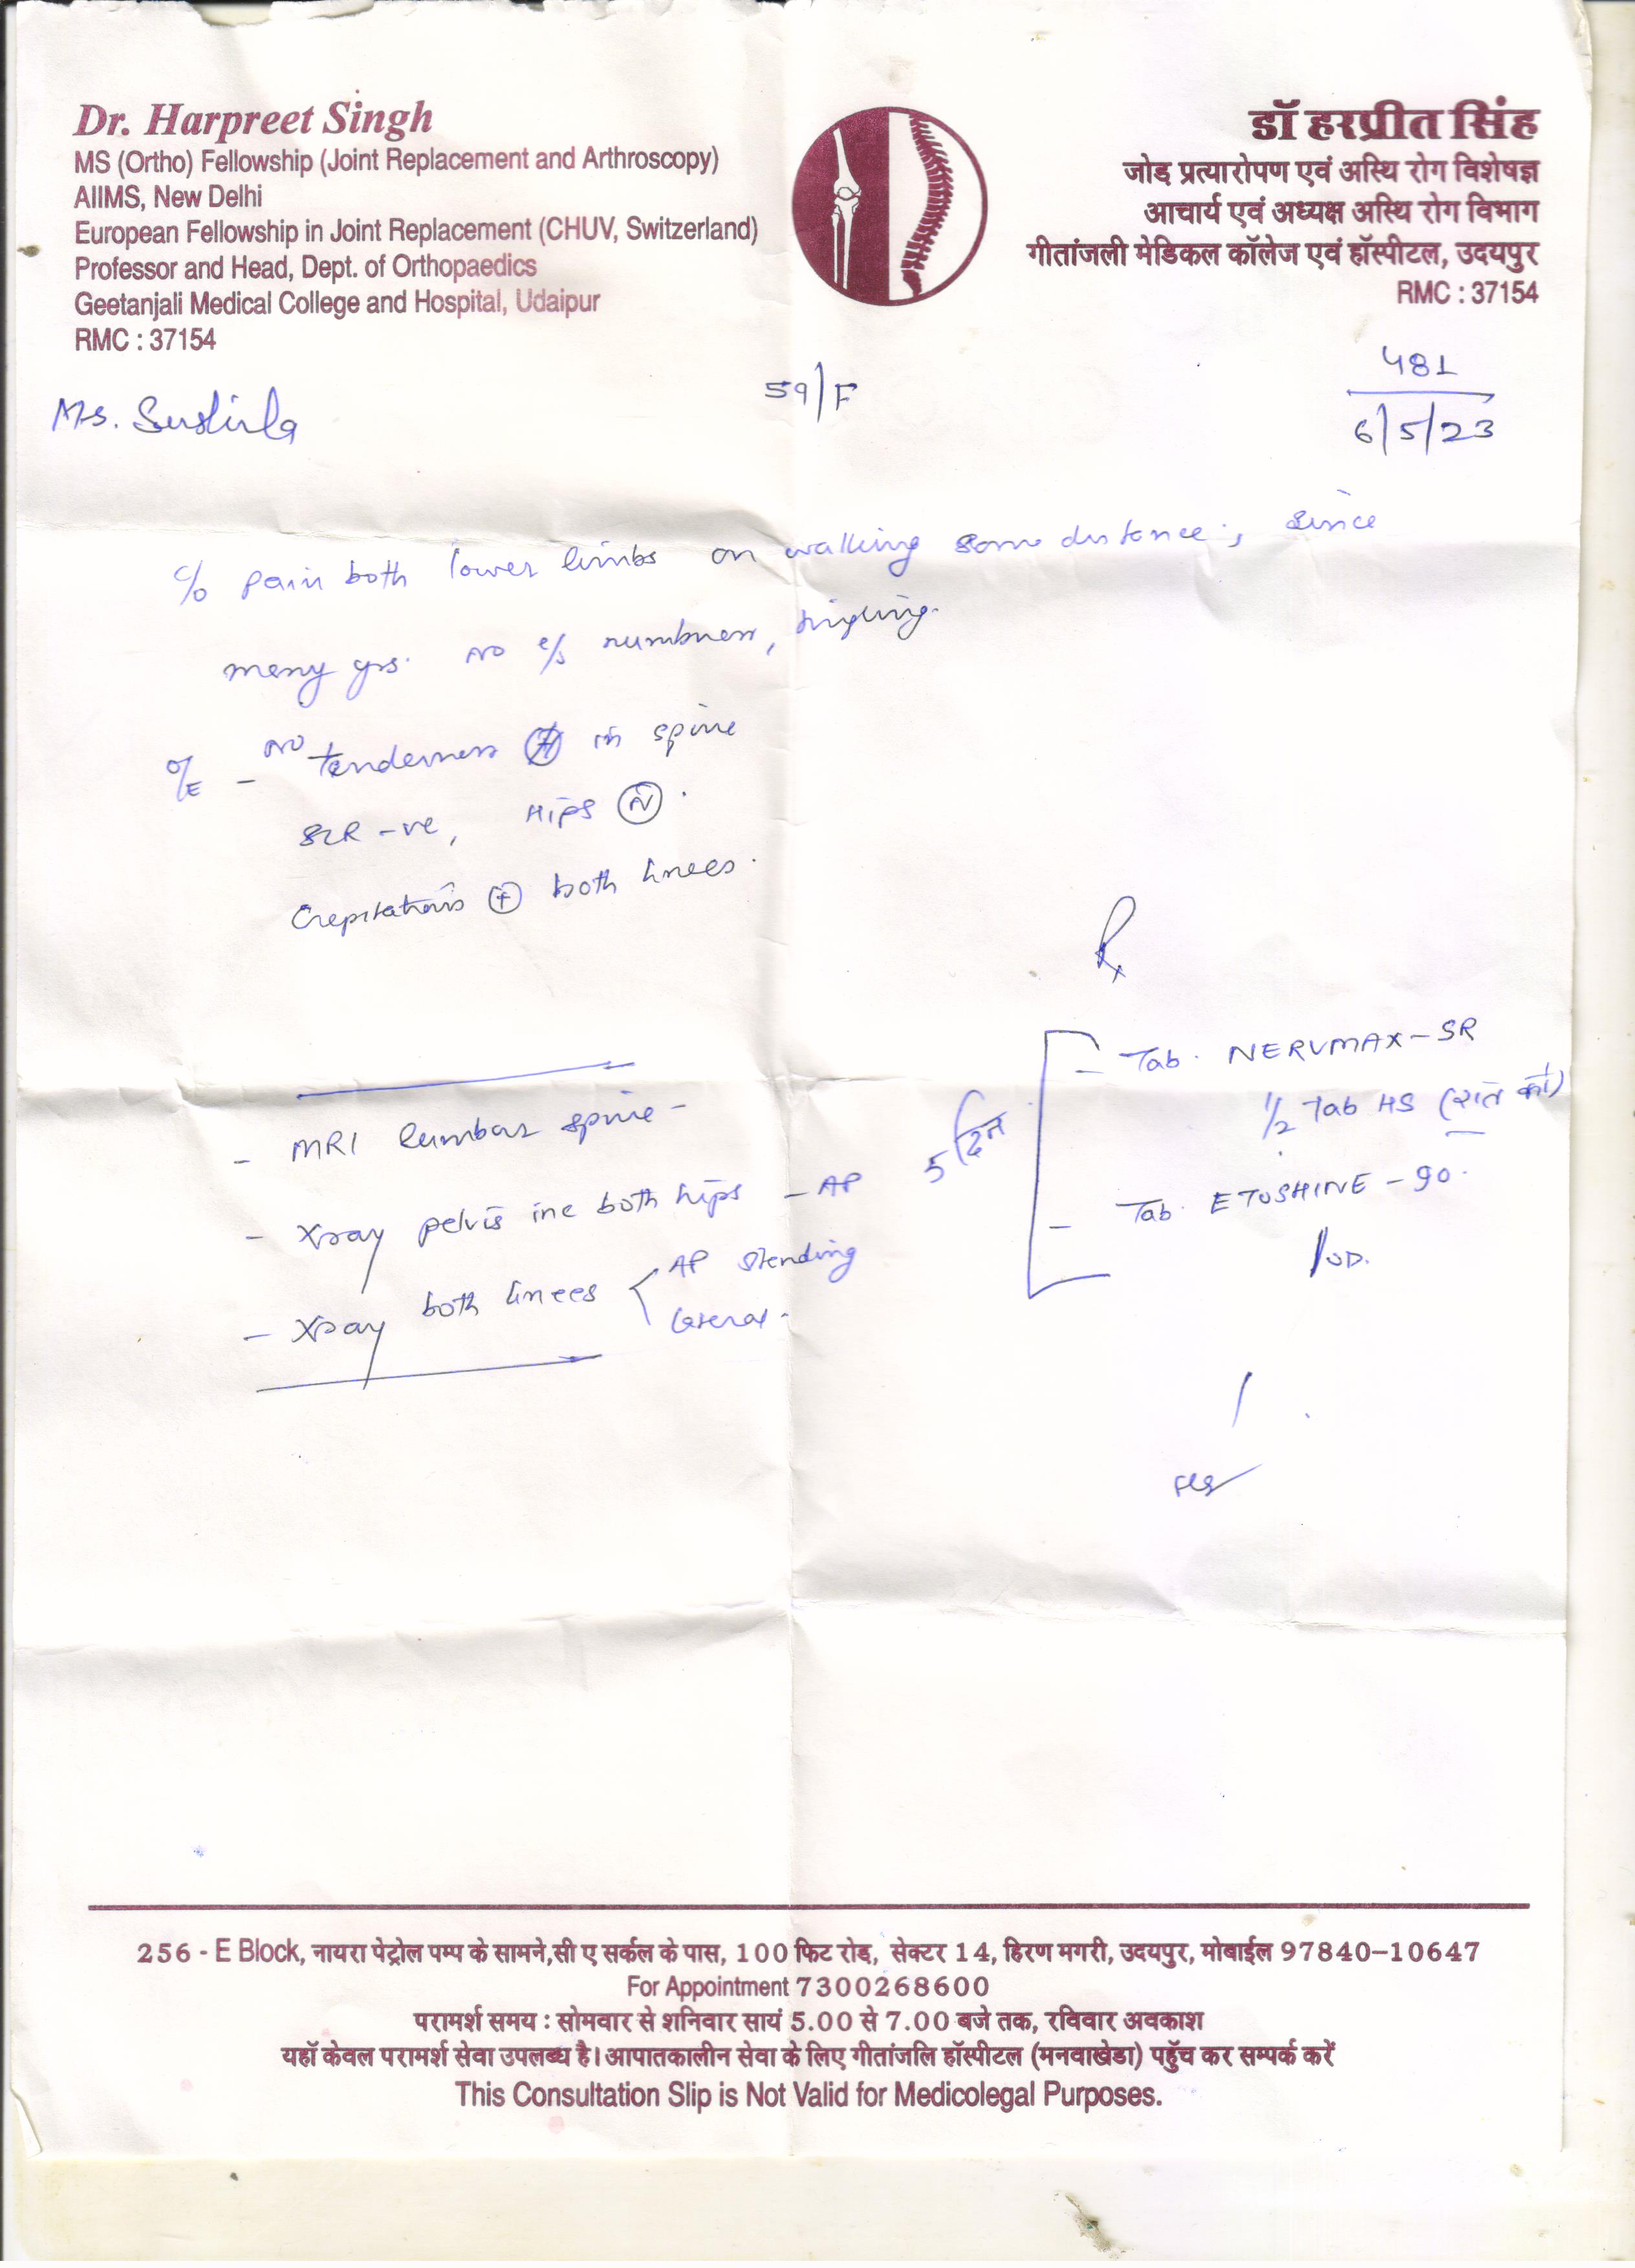 Dr. Harpreet Singh
MS (Ortho) Fellowship (Joint Replacement and Arthroscopy)
AIIMS, New Delhi
European Fellowship in Joint Replacement (CHUV, Switzerland)
Professor and Head, Dept. of Orthopaedics
Geetanjali Medical College and Hospital, Udaipur
RMC : 37154
डॉ हरप्रीत सिंह
जोड प्रत्यारोपण एवं अस्थि रोग विशेषज्ञ
आचार्य एवं अध्यक्ष अस्थि रोग विभाग
गीतांजली मेडिकल कॉलेज एवं हॉस्पीटल, उदयपुर
RMC : 37154
59/F
481
6/5/23
c/o pain both lower limbs on walking some distance, since
many yrs. no c/o numbness, tingling.
O/E - no tenderness in spine
SLR -ve, Hips (N).
Crepitations (+) both knees.
- MRI lumbar spine -
- Xray pelvis inc both hips - AP
- Xray both knees < AP standing
Lateral.
Rx
5 दिन
- Tab. NERVMAX-SR
1/2 Tab HS (रात को)
- Tab. ETOSHINE - 90.
1 OD.
256 - E Block, नायरा पेट्रोल पम्प के सामने,सी ए सर्कल के पास, 100 फिट रोड, सेक्टर 14, हिरण मगरी, उदयपुर, मोबाईल 97840-10647
For Appointment 7300268600
परामर्श समय : सोमवार से शनिवार सायं 5.00 से 7.00 बजे तक, रविवार अवकाश
यहॉ केवल परामर्श सेवा उपलब्ध है। आपातकालीन सेवा के लिए गीतांजलि हॉस्पीटल (मनवाखेडा) पहुँच कर सम्पर्क करें
This Consultation Slip is Not Valid for Medicolegal Purposes.